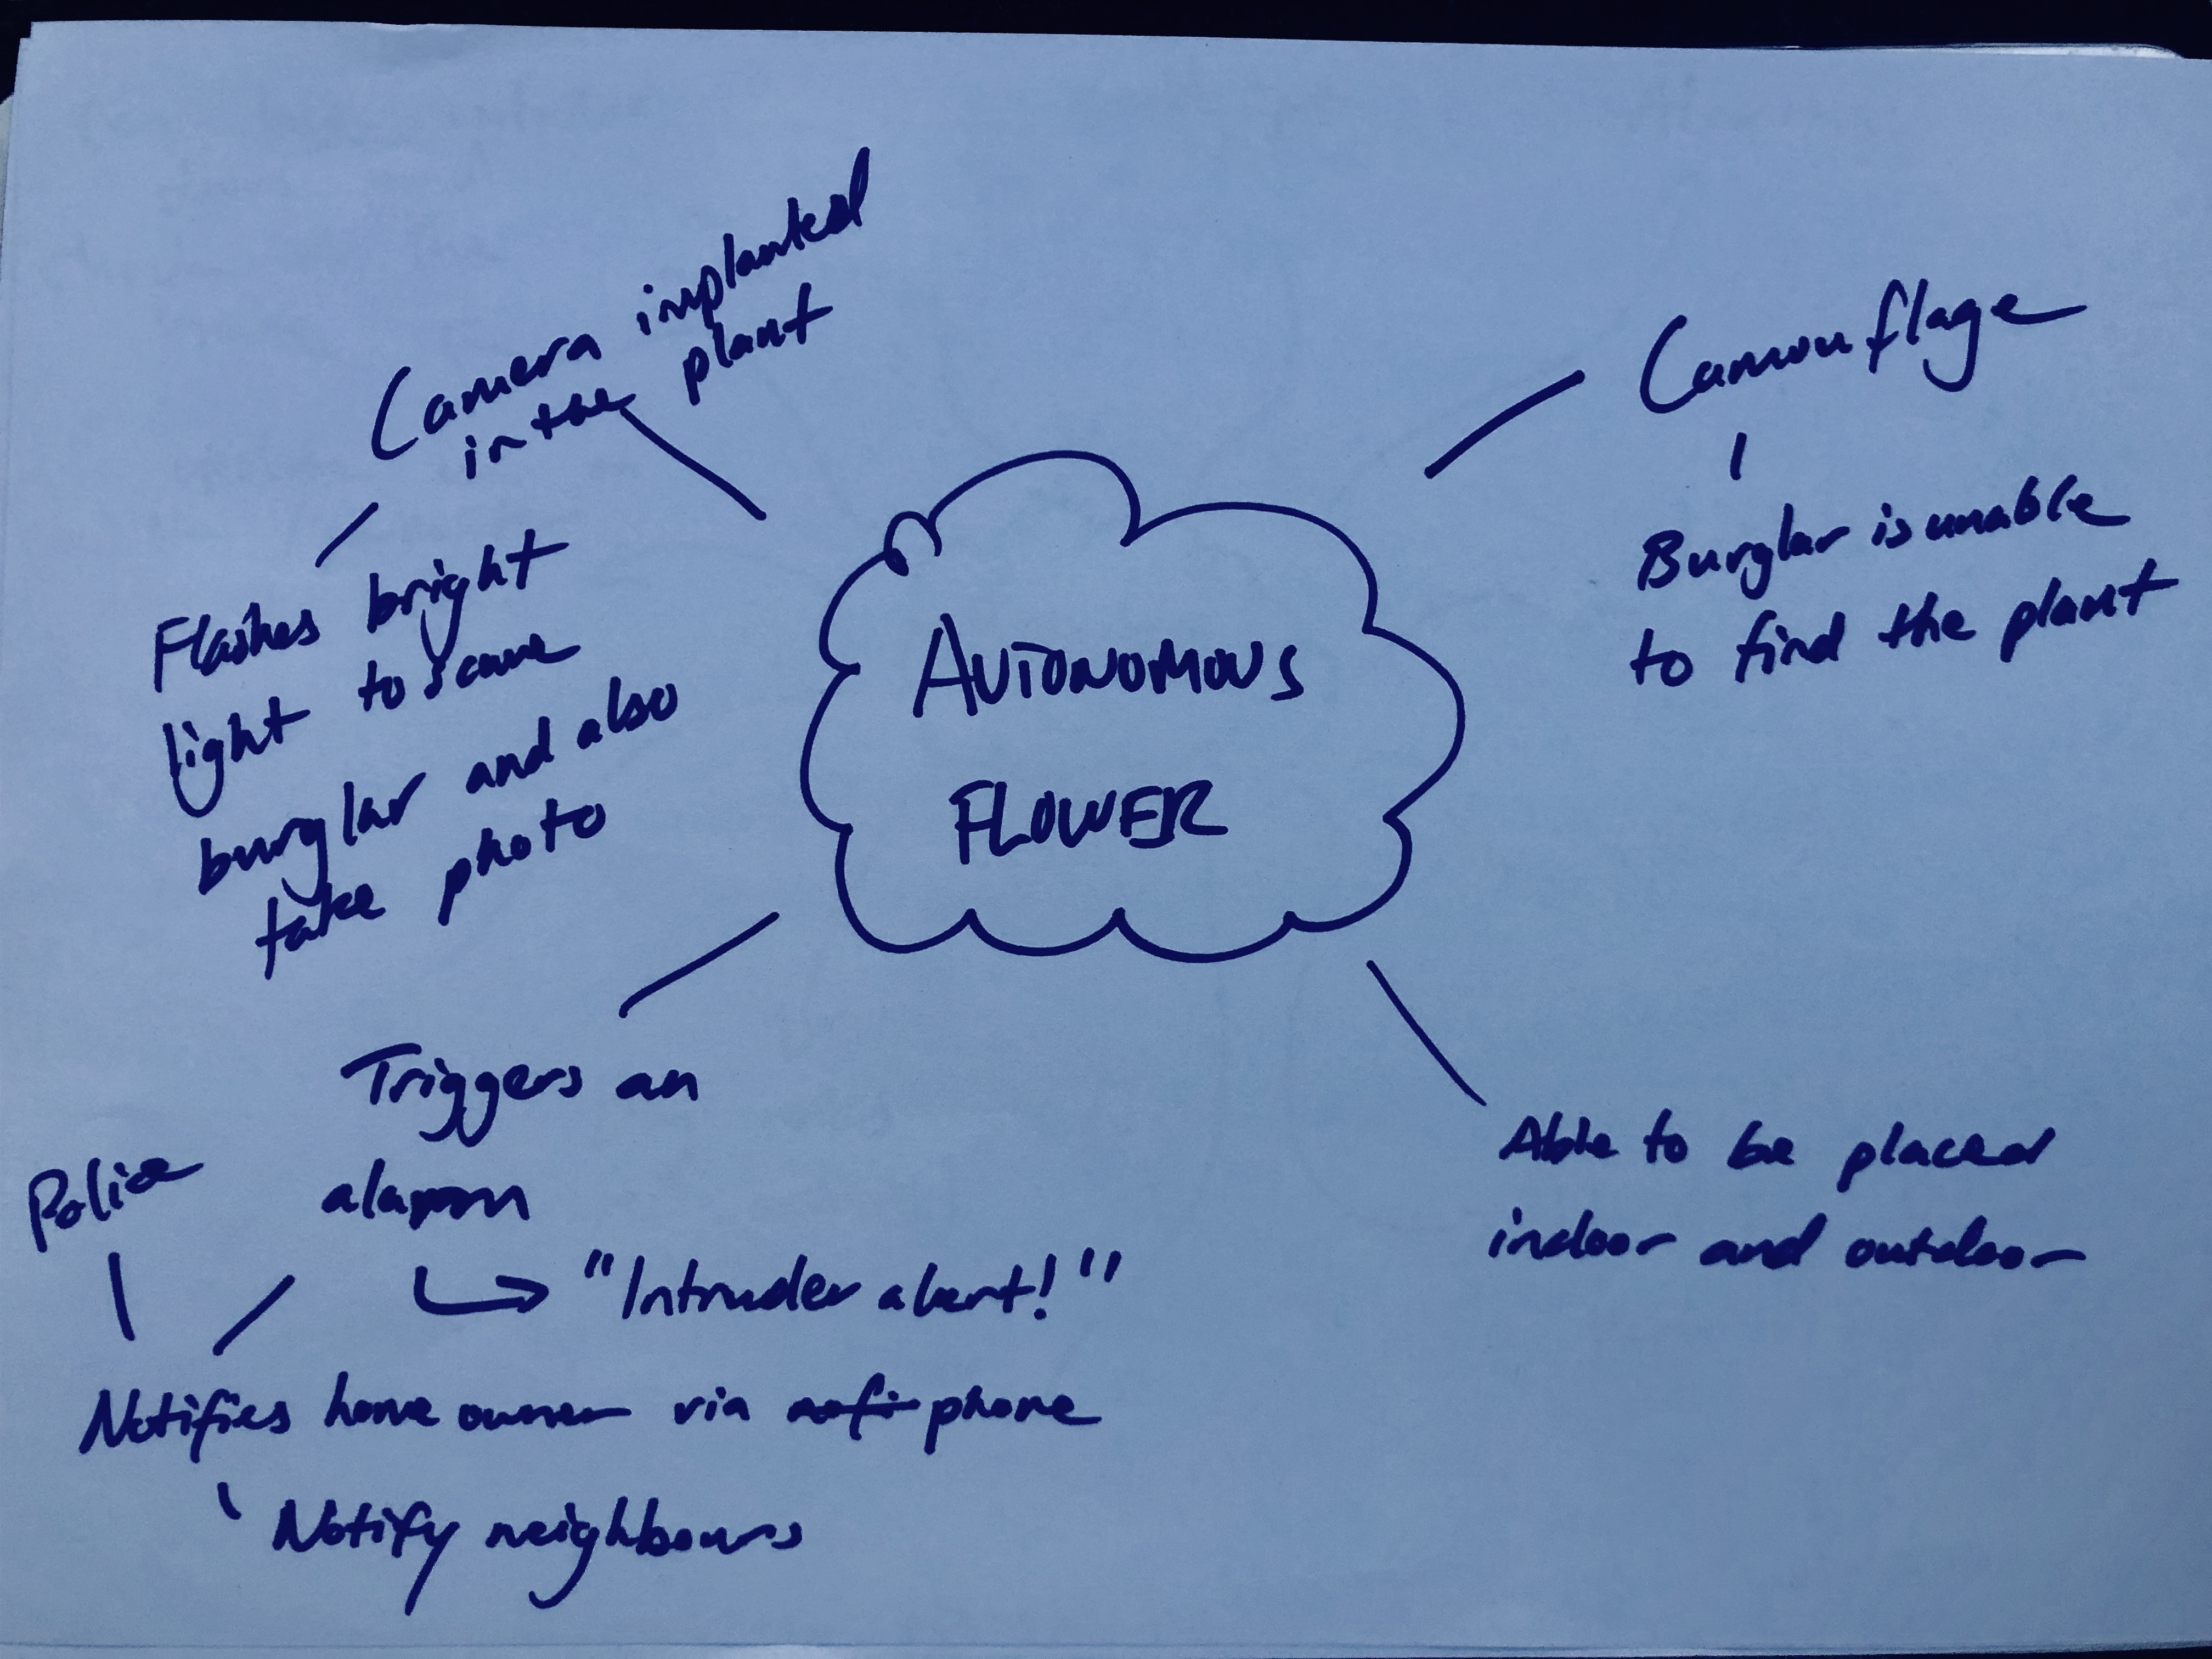 Camera implanted
in the plant
Flashes bright
light to scare
burglar and also
take photo
AUTONOMOUS
FLOWER
Camouflage
Burglar is unable
to find the plant
Triggers an
alarm
"Intruder alert!"
Police
Notifies home owner via phone
Notify neighbours
Able to be placed
indoor and outdoor